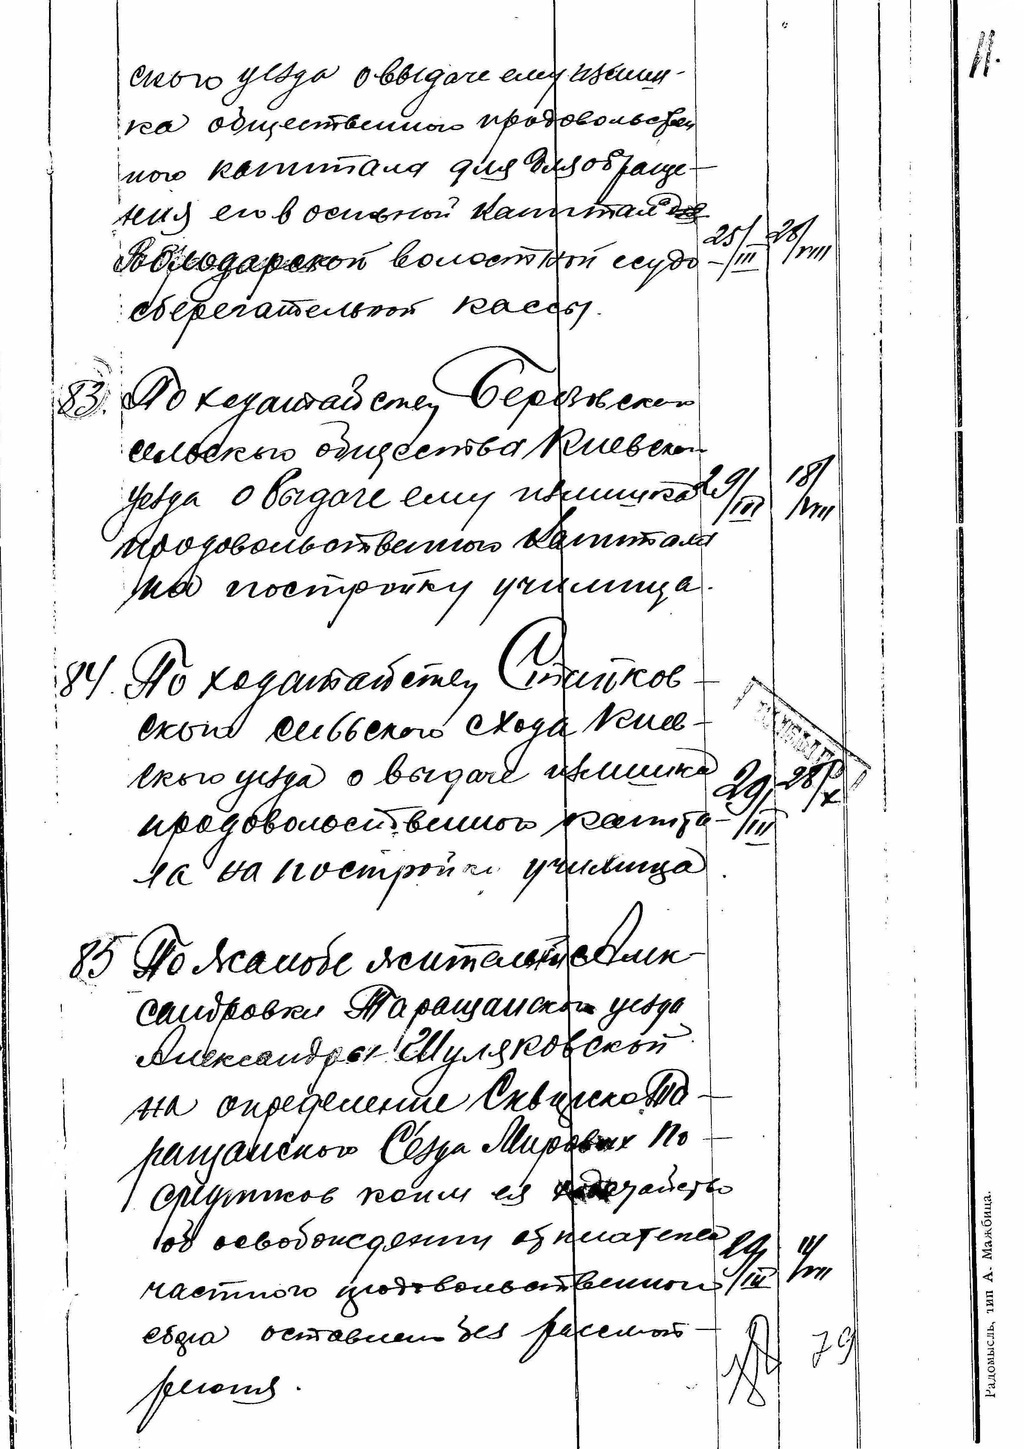 11.
скаго уезда о выдаче ему излиш-
ка общественнаго продовольствен
наго капитала для для обраще-
ния его в основной капитал
Володарской волостной ссудо
25/III 28/VIII
сберегательной кассы.
83. По ходатайству Березовскаго
сельскаго общества Киевскаго
уезда о выдаче ему излишка
29/III 18/VIII
продовольственнаго капитала
на постройку училища.
84. По ходатайству
скаго сельскаго схода Киев-
скаго уезда о выдаче излишка
29/III 28/X
продовольственнаго капита-
ла на постройку училища.
85 По жалобе жительн. с. Алек-
сандровки Таращанскаго уезда
Александры Шуляковской
на определение Сквирско Та-
ращанскаго Съезда Мировых По-
средников коим ея ходатайство
об освобождении от платежа
29/III 11/VIII
частнаго продовольственнаго
сбора оставлено без рассмот-
рения.
79
Радомысль, тип А. Мажбица.